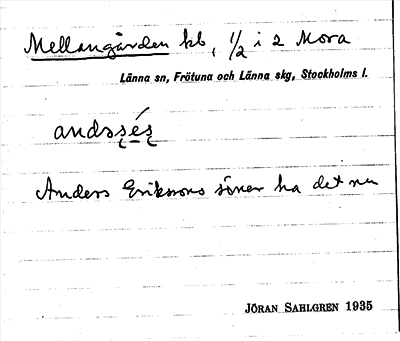 Mellangården hb, 1/2 i 2 Mora
Länna sn, Frötuna och Länna skg, Stockholms l.
andsşéş
Anders Erikssons söner ha det nu
JÖRAN SAHLGREN 1935